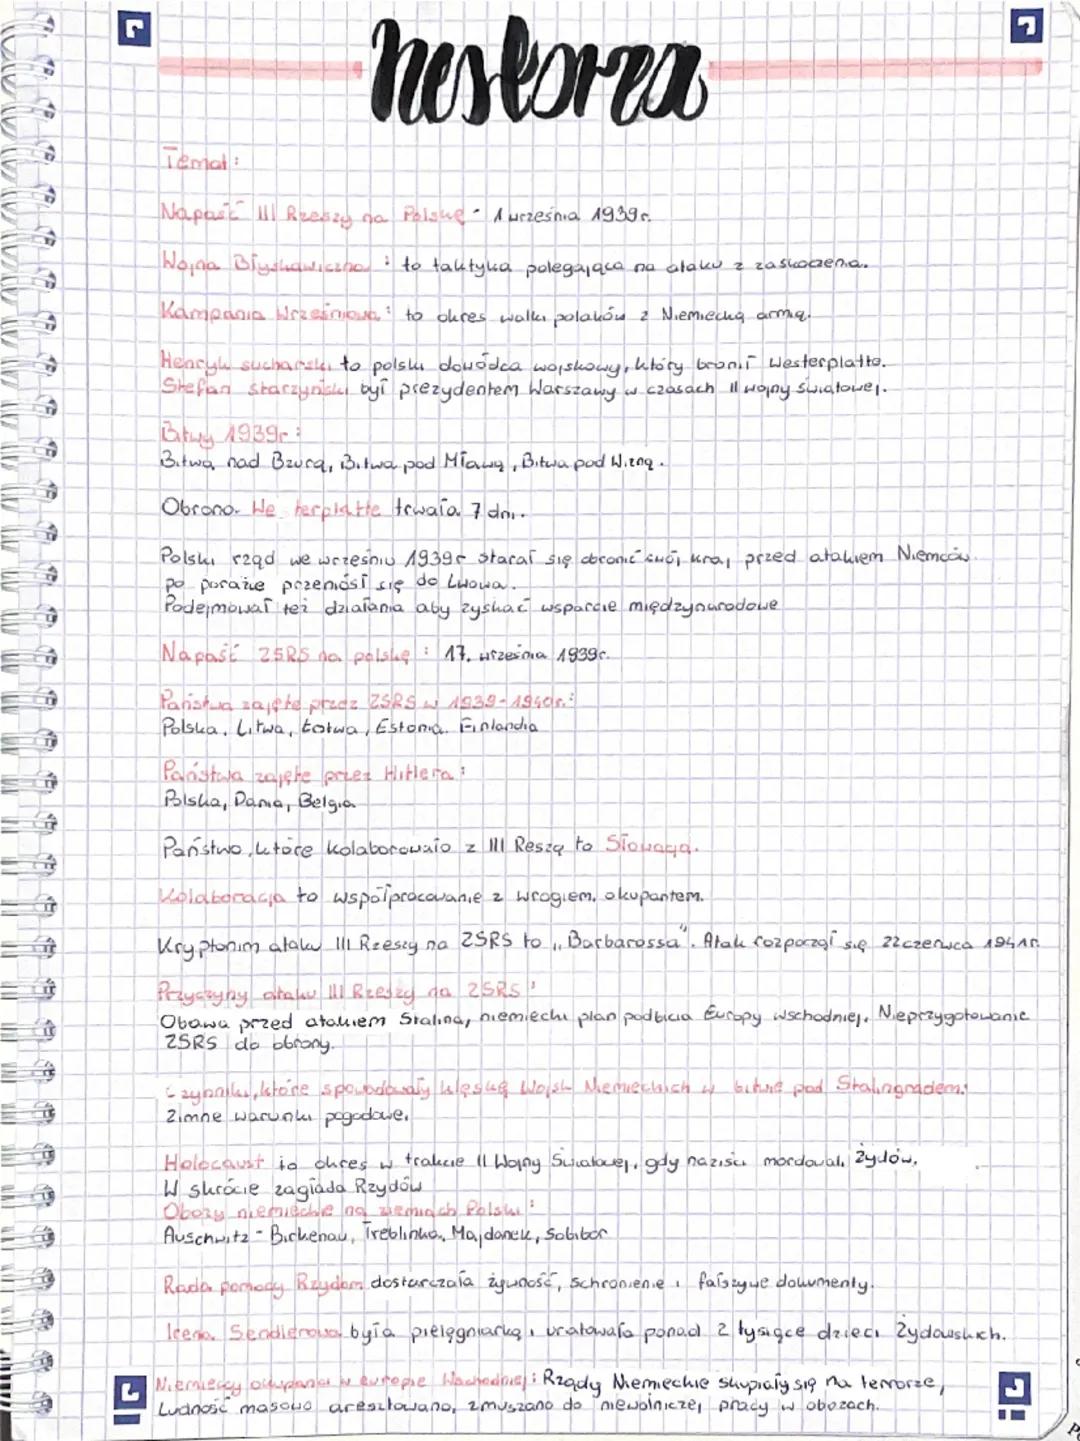 historia
Temat:
Napaść III Rzeszy na Polskę - 1 września 1939r.
Wojna Błyskawiczna: to taktyka polegająca na ataku z zaskoczenia.
Kampania Wrześniowa: to okres walki polaków z Niemiecką armią.
Henryk sucharski to polski dowódca wojskowy, który bronił Westerplatte.
Stefan Starzyński był prezydentem Warszawy w czasach II wojny światowej.
Bitwy 1939r:
Bitwa nad Bzurą, Bitwa pod Mławą, Bitwa pod Wizną.
Obrona We terplatte trwała 7 dni.
Polski rząd we wrześniu 1939r starał się obronić swój kraj przed atakiem Niemców.
po porażce przeniósł się do Lwowa.
Podejmował też działania aby zyskać wsparcie międzynarodowe
Napaść ZSRS na polskę: 17. września 1939r.
Państwa zajęte przez ZSRS w 1939-1940r.:
Polska, Litwa, Łotwa, Estonia, Finlandia
Państwa zajęte przez Hitlera:
Polska, Dania, Belgia
Państwo, które kolaborowało z III Reszą to Słowacja.
Kolaboracja to współpracowanie z wrogiem, okupantem.
Kryptonim ataku III Rzeszy na ZSRS to „Barbarossa". Atak rozpoczął się 22 czerwca 1941r.
Przyczyny ataku III Rzeszy na ZSRS:
Obawa przed atakiem Stalina, niemiecki plan podbicia Europy wschodniej. Nieprzygotowanie
ZSRS do obrony.
Czynniki, które spowodowały klęskę Wojsk Niemieckich w bitwie pod Stalingradem:
Zimne warunki pogodowe.
Holocaust to okres w trakcie II Wojny Światowej, gdy naziści mordowali Żydów,
W skrócie zagłada Rzydów
Obozy niemieckie na ziemiach Polski:
Auschwitz - Birkenau, Treblinka, Majdanek, Sobibor
Rada pomocy Rzydom dostarczała żywność, schronienie i fałszywe dokumenty.
Irena Sendlerowa była pielęgniarką i uratowała ponad 2 tysiące dzieci Żydowskich.
Niemieccy okupanci w Europie Wschodniej: Rządy Niemieckie skupiały się na terrorze,
Ludność masowo aresztowano, zmuszano do niewolniczej pracy w obozach.